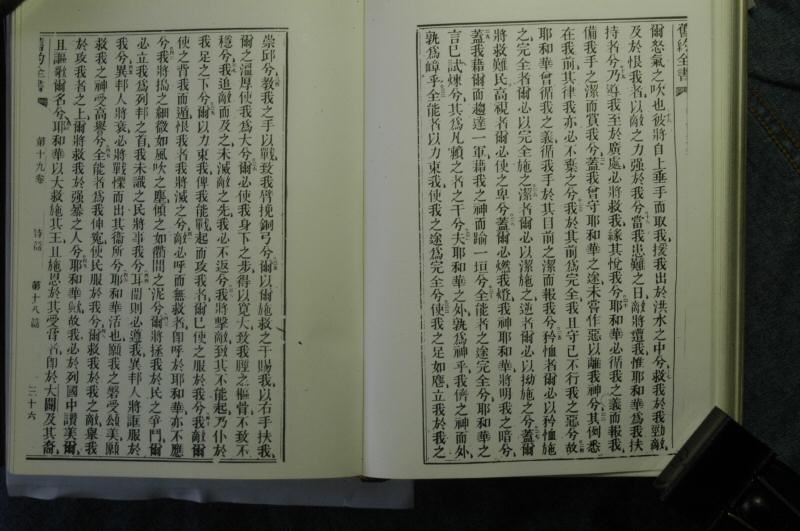 舊約全書
爾怒氣之吹也彼將自上垂手而取我援我出於洪水之中兮救我於我勁敵
及於恨我者以敵之力强於我兮當我患難之日敵將遭我惟耶和華爲我扶
持者兮乃導我至於廣處必將救我緣其悅我兮耶和華必循我之義而報我
備我手之潔而賞我兮蓋我曾守耶和華之途未嘗作惡以離我神兮其例悉
在我前其律我亦必不棄之兮我於其前爲完全我且守己不行我之惡兮故
耶和華曾循我之義循我手於其目前之潔而報我兮矜恤者爾必以矜恤施
之完全者爾必以完全施之潔者爾必以潔施之逆者爾必以拗施之兮蓋爾
將救難民高視者爾必使之卑兮蓋爾必燃我燈我神耶和華將明我之暗兮
蓋我藉爾而趨達一軍藉我之神而踰一垣兮全能者之途完全兮耶和華之
言已試煉兮其爲凡賴之者之干兮夫耶和華之外孰爲神乎我儕之神而外
孰爲嶂乎全能者以力束我使我之途爲完全兮使我之足如麀立我於我之
崇邱兮教我之手以戰致我臂挽銅弓兮爾以爾施救之干賜我以右手扶我
爾之溫厚使我爲大兮爾必使我身下之步得以寬大致我踝之樞骨不致不
穩兮我追敵而及之未滅敵之先我必不返兮我將擊敵致其不能起乃仆於
我足之下兮爾以力束我俾我能戰起而攻我者爾已使之服於我兮我敵爾
使之背我而遁恨我者我將滅之兮敵必呼而無救者卽呼於耶和華亦不應
兮我將搗之細微如風吹之塵傾之如衢間之泥兮爾將拯我於民之爭鬥爾
必立我爲列邦之首我未識之民將事我兮耳聞則必遵我異邦人將誆服於
我兮異邦人將衰必將戰慄而出其衞所兮耶和華活也願我之磐受頌美願
救我之神受高譽兮全能者爲我伸冤使民服於我兮爾救我於我之敵舉我
於攻我者之上爾將救我於强暴之人兮耶和華歟故我必於列國中讚美爾
且謳歌爾名兮耶和華以大救施其王且施恩於其受膏者卽於大闢及其裔
第十九卷
詩篇
第十八篇
三十六